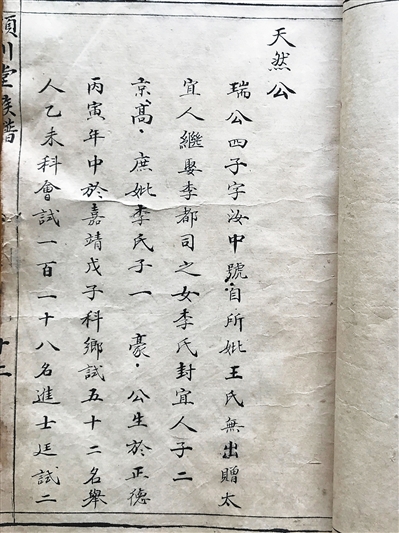 天然公
瑞公四子字汝中號自所妣王氏無出贈太
宜人繼娶李都司之女李氏封宜人子二
京高庶妣李氏子一 豪公生於正德
丙寅年中於嘉靖戊子科鄉試五十二名舉
人乙未科會試一百一十八名進士廷試二
川堂族譜